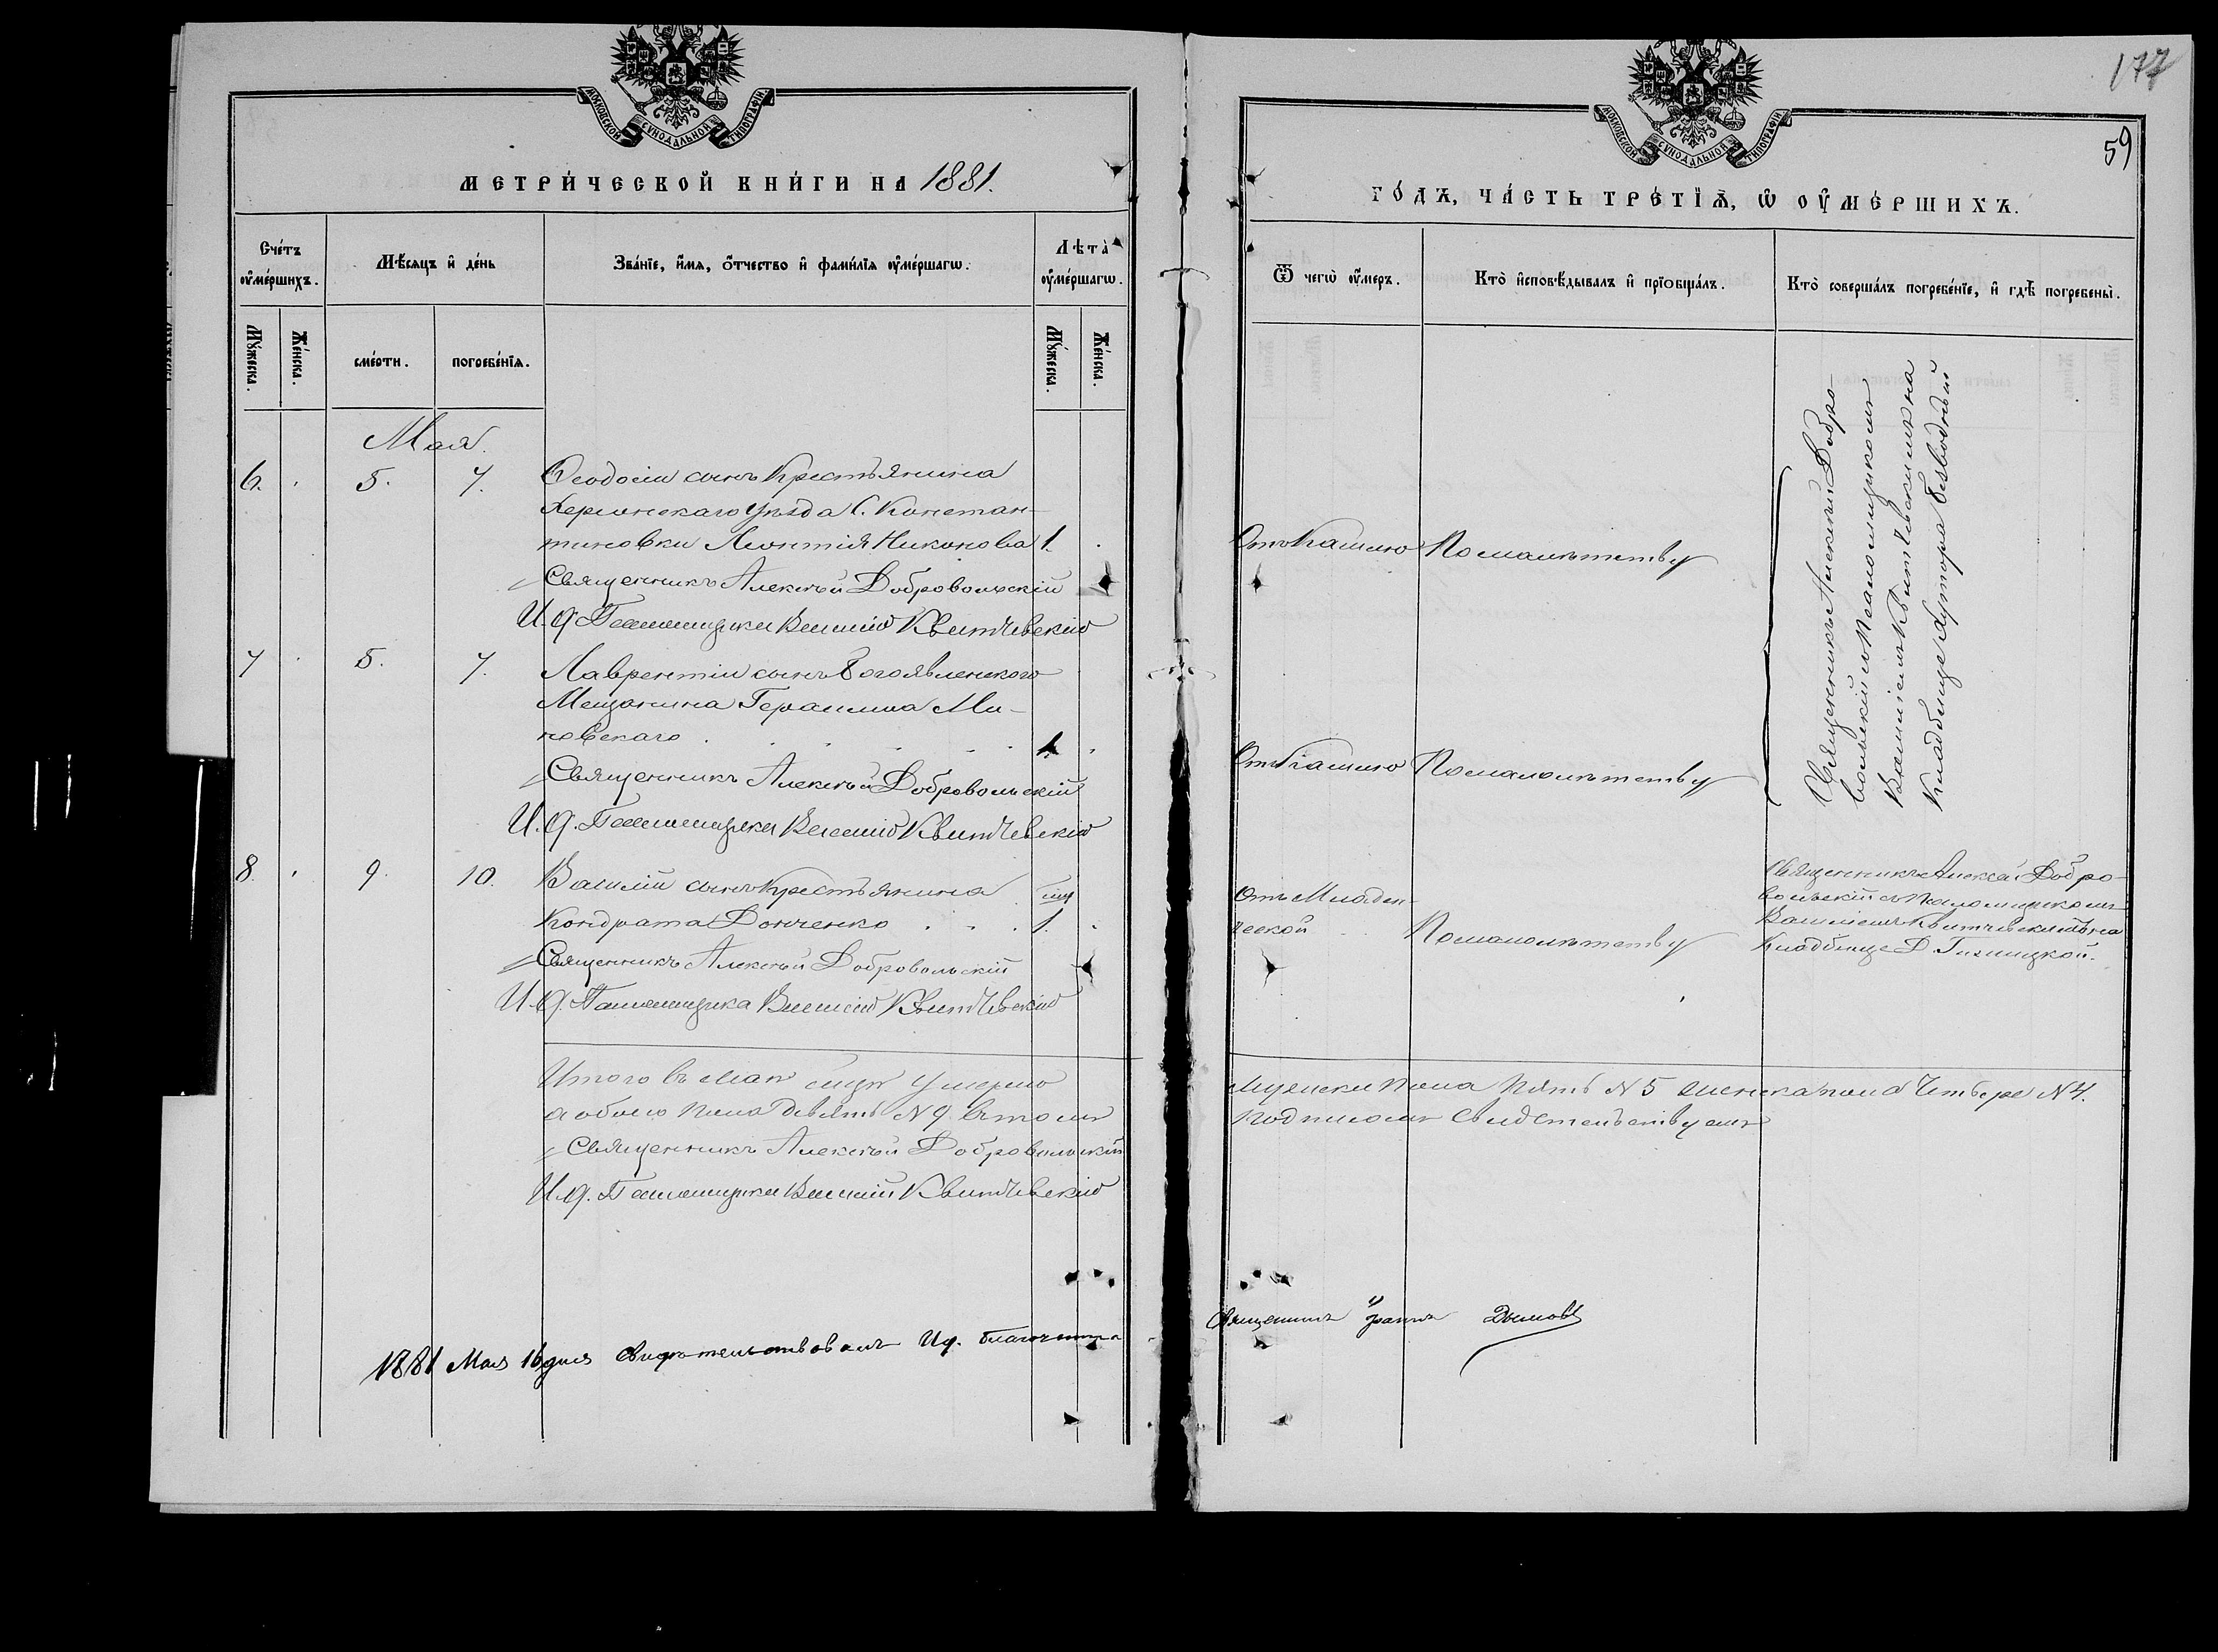 МОСКОВСКОЙ СѴНОДАЛЬНОЙ ТИПОГРАФІИ
МЕТРИ́ЧЕСКОЙ КНИ́ГИ НА 1881.
Сче́тъ ᲂу҆ме́ршихъ.
Мѣ́сяцъ и҆ де́нь
Зва́нїе, и҆́мя, ѻ҆́тчество и҆ фами́лїя ᲂу҆ме́ршагѡ.
Лѣта̀ ᲂу҆ме́ршагѡ.
Мꙋ́жеска.
Же́нска.
сме́рти.
погребе́нїѧ.
Мꙋ́жеска.
Же́нска.
Мая.
6. 5. 7. Ѳеодосій сынъ Крестьянина
Херсонскаго Уѣзда С. Констан-
тиновки Леонтія Никонова 1.
Священникъ Алексѣй Добровольскій
И. д. Псаломщика Василій Квитчевскій
7 5. 7. Лаврентій сынъ Богоявленского
Мещанина Герасима Ми-
новскаго 1.
Священникъ Алексѣй Добровольскій
И. д. Псаломщика Василій Квитчевскій
8. 9. 10. Василій сынъ Крестьянина
Кондрата Донченко 1.
Священникъ Алексѣй Добровольскій
И. д. Псаломщика Василій Квитчевскій
Итого въ Маѣ умерло
обоего пола девять N 9. въ томъ
Священникъ Алексѣй Добровольскій
И. д. Псаломщика Василій Квитчевскій
1881 Мая 16 дня свидѣтельствовалъ Ид. благочиннаго
177
59
МОСКОВСКОЙ СѴНОДАЛЬНОЙ ТИПОГРАФІИ
ГО́ДЪ, ЧА́СТЬ ТРЕ́ТЇѦ, Ѡ҆ ОУ҆МЕ́РШИХЪ.
Ѿ чегѡ̀ ᲂу҆́меръ.
Кто̀ и҆сповѣ́дывалъ и҆ прїѡбща́лъ.
Кто̀ соверша́лъ погребе́нїе, и҆ гдѣ̀ погребены̀.
Отъ Кашлю По малолѣтству
Священникъ Алексѣй Добро-
вольскій съ Псаломщикомъ
Василіемъ Квитчевскимъ на
Кладбище Хутора Безводный
Отъ Кашлю По малолѣтству
Отъ Младен-
ческой По малолѣтству
Священникъ Алексѣй Добро-
вольскій съ Псаломщикомъ
Василіемъ Квитчевскимъ на
Кладбище Д.
Мужеска пола пять N 5 женска пола Четверо N 4.
подписомъ Свидетельствуемъ
Священникъ Іоаннъ Дымовъ